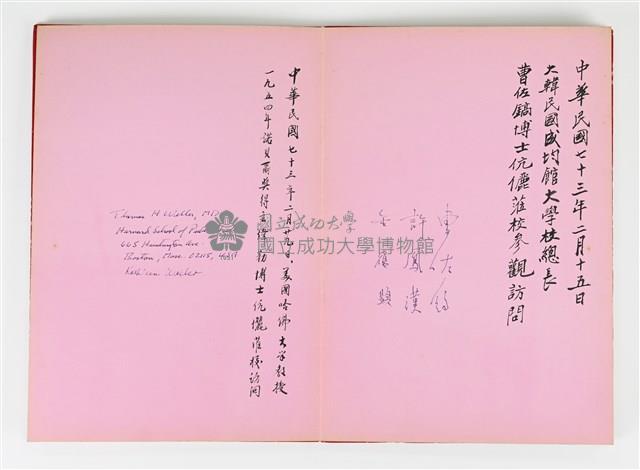 中華民國七十三年二月十五日
大韓民國成均館大學校總長
曹佐鎬博士伉儷蒞校參觀訪問
許鳳漢
中華民國七十三年二月廿九日、美國哈佛大学教授
一九五四年諾貝爾獎得主 博士伉儷蒞校訪问
Thomas H Weller, MD
Harvard School of Pub
665 Huntington Ave.
Boston, Mass. 02115, USA
Kathleen Weller
國立成功大學
國立成功大學博物館